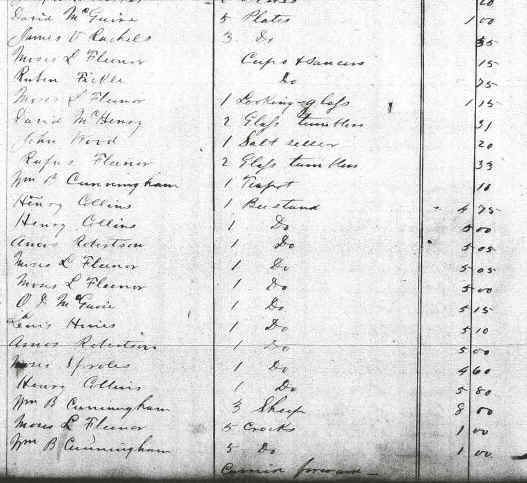 20
David McGuire 5 Plates 1 00
James V Rachels 3 Do 35
Moses L Fleenor Cups & Saucers 15
Ruben Fickle Do 75
Moses L Fleenor 1 Looking-glass 1 15
David McHenry 2 Glass tumblers 31
John Wood 1 Salt seller 20
Rufus Fleenor 2 Glass tumblers 33
Wm B Cunningham 1 Teapot 10
Henry Collins 1 Beestand 4 75
Henry Collins 1 Do 5 00
Amos Robertson 1 Do 5 05
Moses L Fleenor 1 Do 5 05
Moses L Fleenor 1 Do 5 00
O. D. McGuire 1 Do 5 15
Lewis Hines 1 Do 5 10
Amos Robertson 1 Do 5 00
Moses Sproles 1 Do 4 60
Henry Collins 1 Do 5 80
Wm B Cunningham 3 Sheep 8 00
Moses L Fleenor 5 Crocks 1 00
Wm B Cunningham 5 Do 1 00
Carried forward